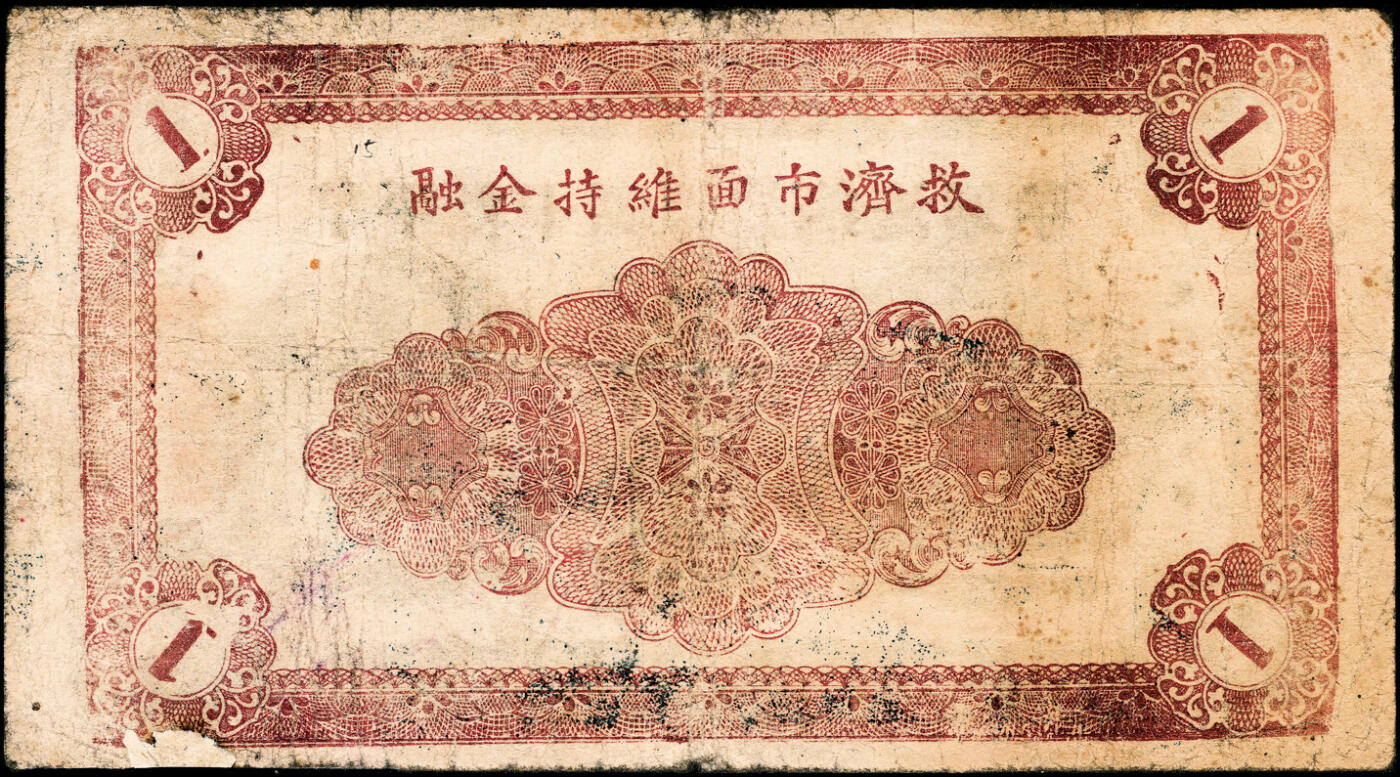 1 1
15
救濟市面維持金融
1 1